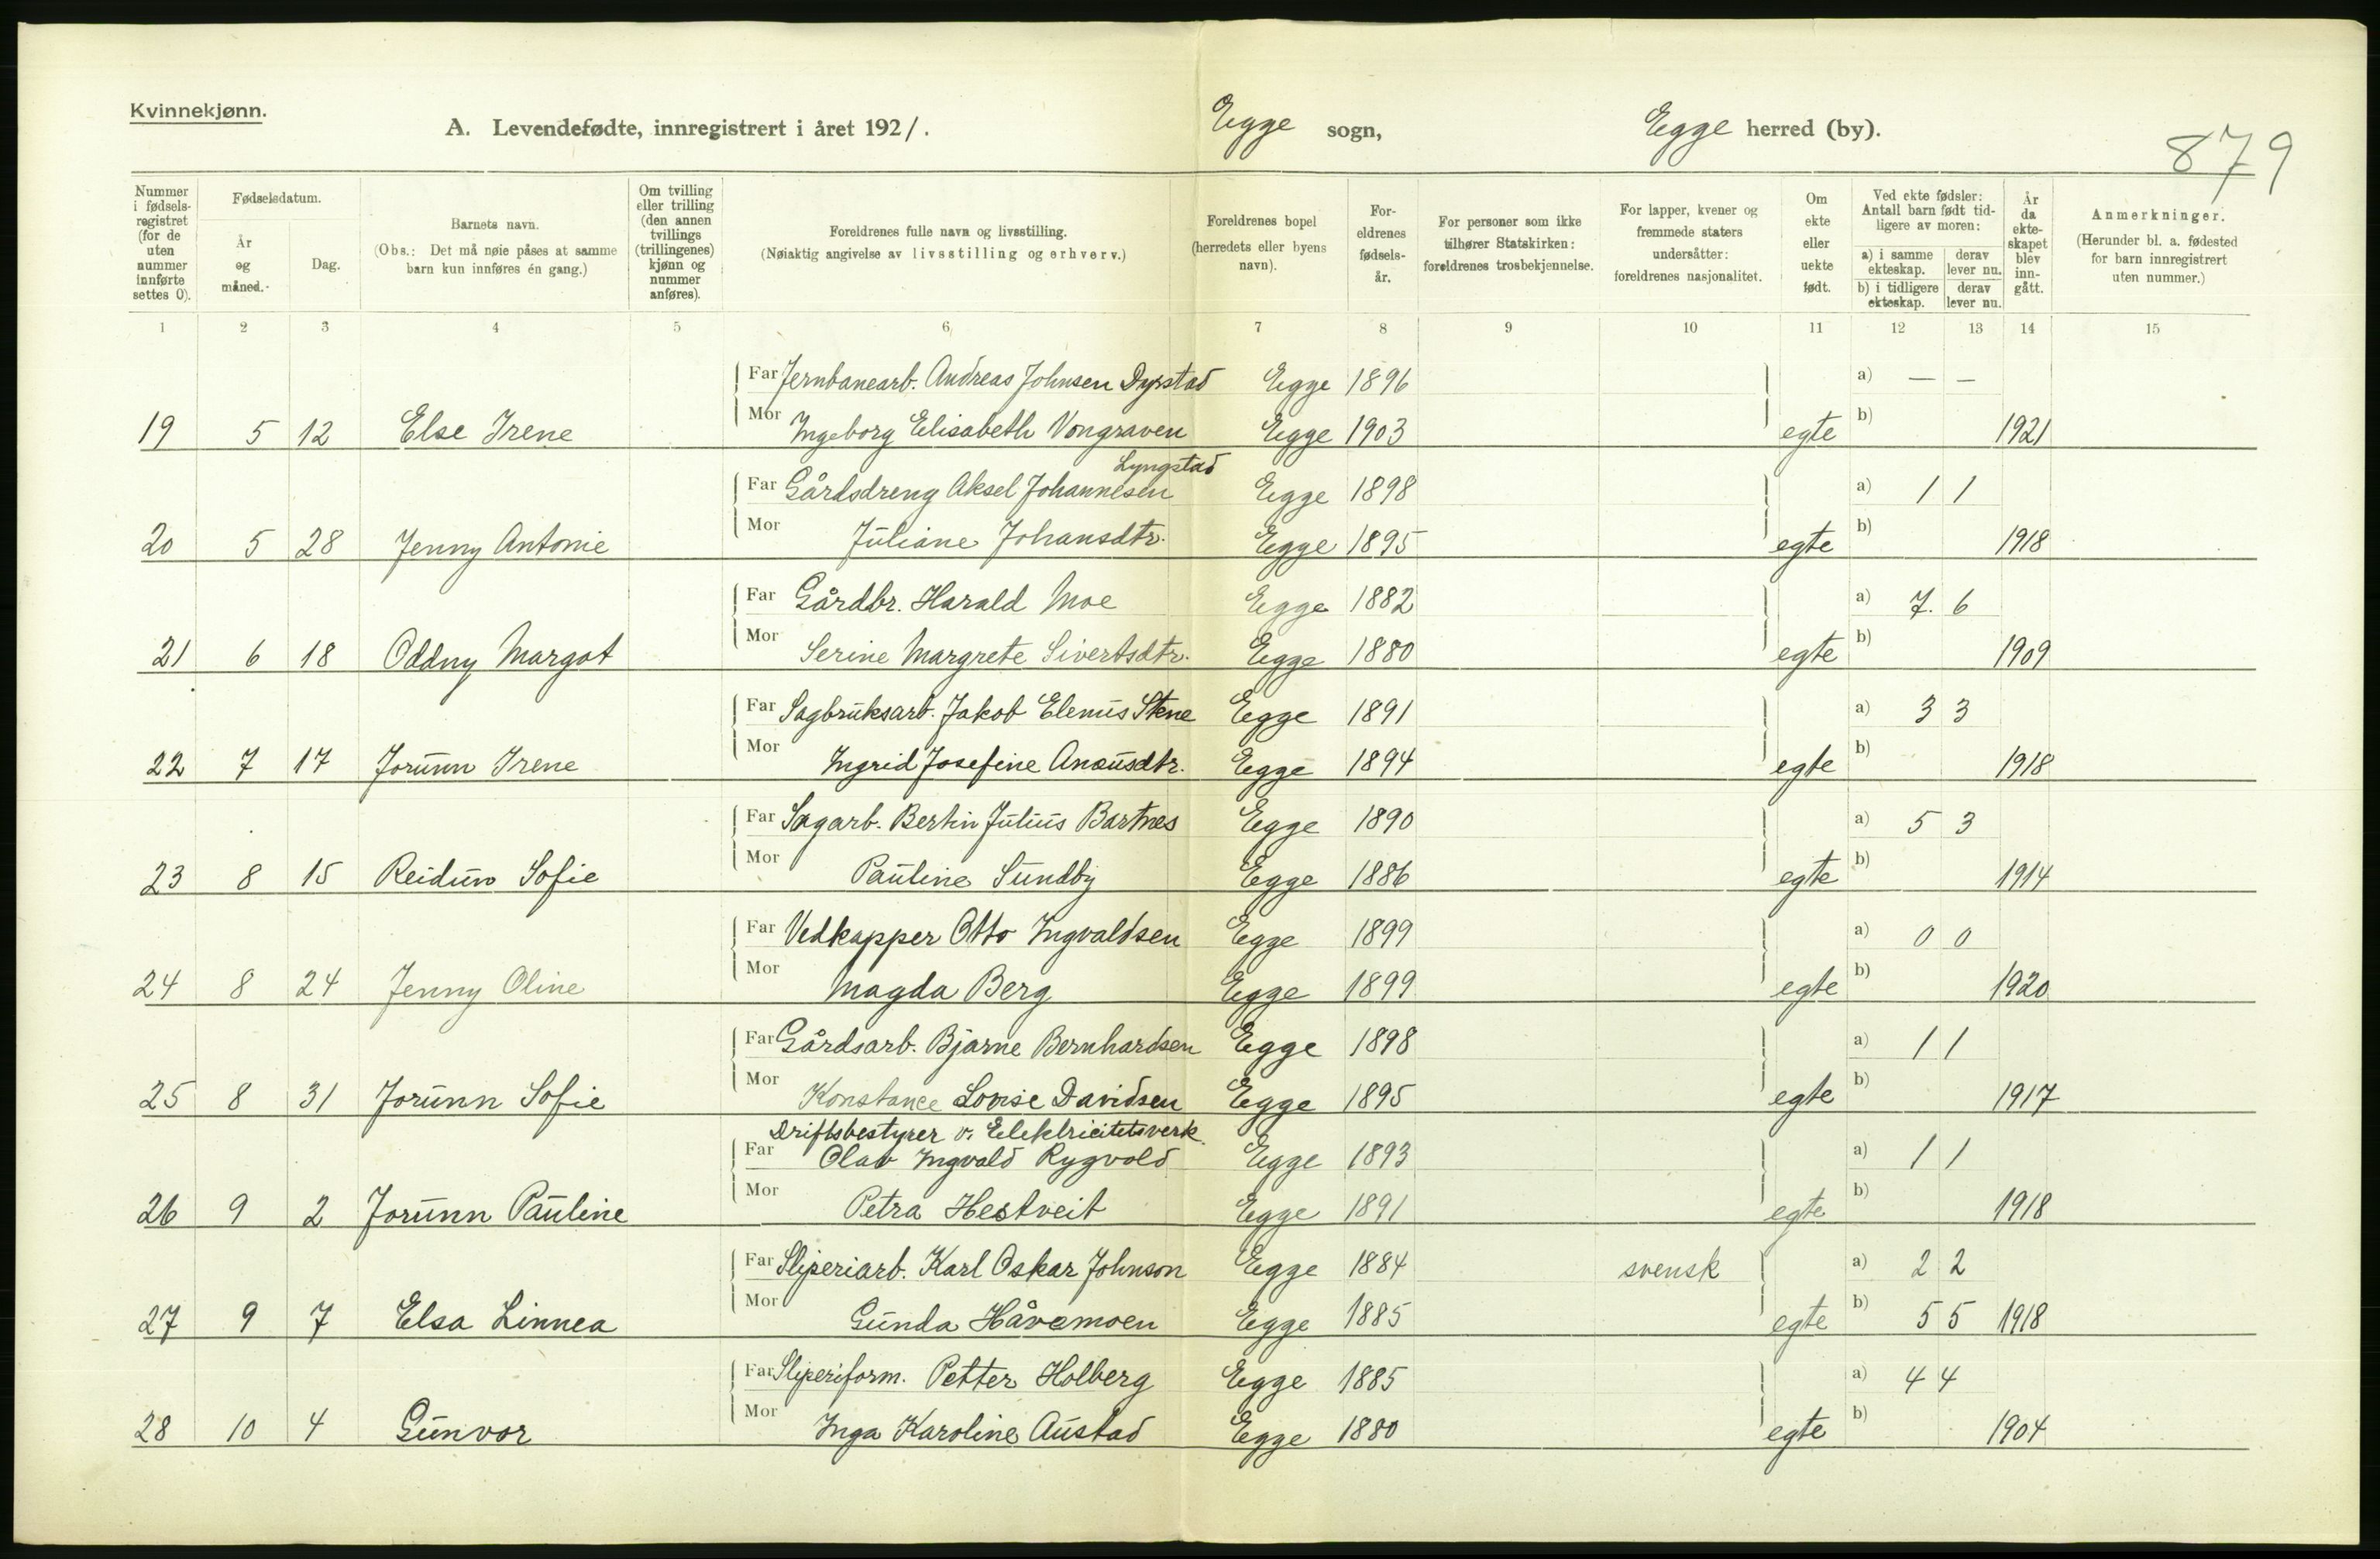 Kvinnekjønn.
A. Levendefødte, innregistrert i året 1921.
Egge sogn,
Egge herred (by).
879
Nummer i fødsels-registret (for de uten nummer innførte settes 0).
Fødselsdatum.
År og måned.
Dag.
Barnets navn.
(Obs.: Det må nøie påses at samme barn kun innføres én gang.)
Om tvilling eller trilling (den annen tvillings (trillingenes) kjønn og nummer anføres).
Foreldrenes fulle navn og livsstilling.
(Nøiaktig angivelse av livsstilling og erhverv.)
Foreldrenes bopel (herredets eller byens navn).
For-eldrenes fødsels-år.
For personer som ikke tilhører Statskirken: foreldrenes trosbekjennelse.
For lapper, kvener og fremmede staters undersåtter: foreldrenes nasjonalitet.
Om ekte eller uekte født.
Ved ekte fødsler: Antall barn født tid-ligere av moren:
a) i samme ekteskap.
derav lever nu.
b) i tidligere ekteskap.
derav lever nu.
År da ekte-skapet blev inn-gått.
Anmerkninger.
(Herunder bl. a. fødested for barn innregistrert uten nummer.)
1 2 3 4 5 6 7 8 9 10 11 12 13 14 15
Far Jernbanearb. Andreas Johnsen Dyrstad Egge 1896 a) — —
19 5 12 Else Irene Mor Ingeborg Elisabeth Vongraven Egge 1903 egte b) 1921
Lyngstad
Far Gårdsdreng Aksel Johannesen Egge 1898 a) 1 1
20 5 28 Jenny Antonie Mor Juliane Johansdtr. Egge 1895 egte b) 1918
Far Gårdbr. Harald Moe Egge 1882 a) 7. 6
21 6 18 Oddny Margot Mor Serine Margrete Sivertsdtr. Egge 1880 egte b) 1909
Far Sagbruksarb. Jakob Elenus Stene Egge 1891 a) 3 3
22 7 17 Jorunn Irene Mor Ingrid Josefine Egge 1894 egte b) 1918
Far Sagarb. Bertin Julius Bartnes Egge 1890 a) 5 3
23 8 15 Reidun Sofie Mor Pauline Sundby Egge 1886 egte b) 1914
Far Vedkapper Otto Ingvaldsen Egge 1899 a) 0 0
24 8 24 Jenny Oline Mor Magda Berg Egge 1899 egte b) 1920
Far Gårdsarb. Bjarne Bernhardsen Egge 1898 a) 1 1
25 8 31 Jorunn Sofie Mor Konstance Lovise Davidsen Egge 1895 egte b) 1917
Driftsbestyrer v. Elektricitetsverk
Far Olav Ingvald Rygvold Egge 1893 a) 1 1
26 9 2 Jorunn Pauline Mor Petra Hestveit Egge 1891 egte b) 1918
Far Sliperiarb. Karl Oskar Johnson Egge 1884 svensk a) 2 2
27 9 7 Elsa Linnea Mor Gunda Håvamoen Egge 1885 egte b) 5 5 1918
Far Sliperiform. Petter Holberg Egge 1885 a) 4 4
28 10 4 Gunvor Mor Inga Karoline Austad Egge 1880 egte b) 1904